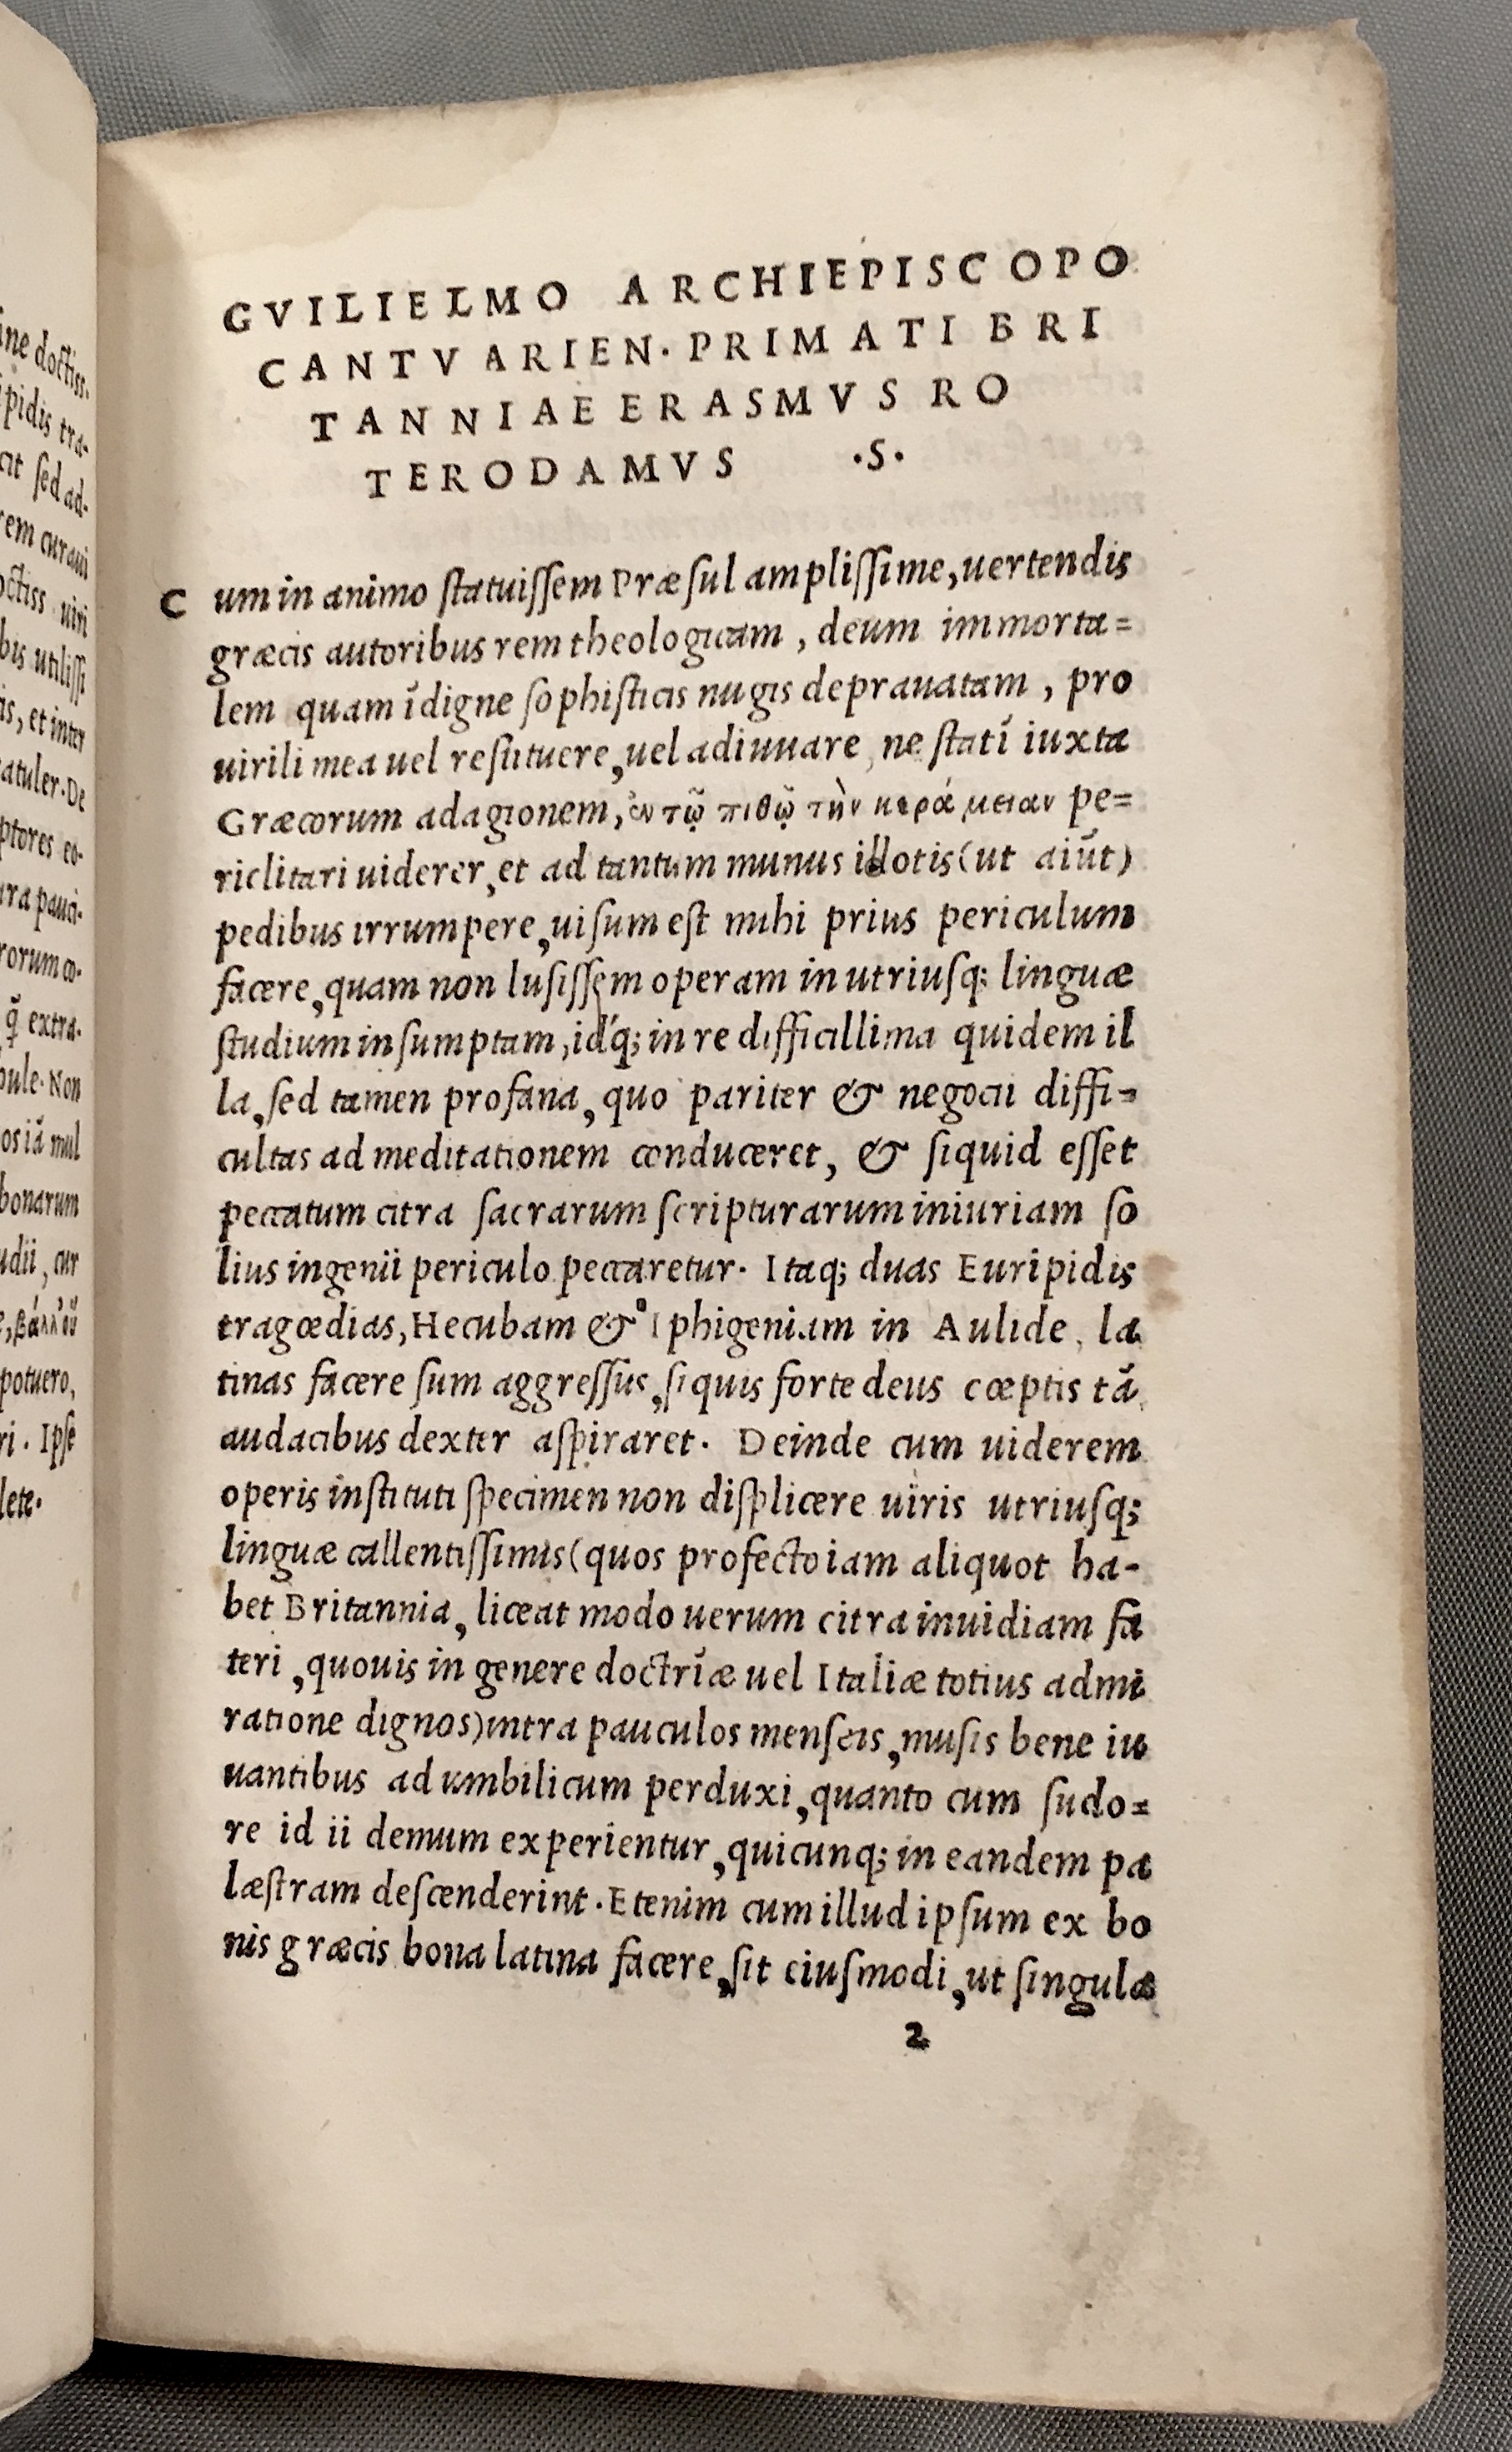 ine doctiss.
ipidis tra-
cit sed ad-
rem curaui
octiss uiri
bis utilissi
is, et inter
atuler. De
ptores eo-
ura pauci-
rorum co-
q̃ extra-
pule. Non
os iã mul
bonarum
udii, cur
potuero,
ri. Ipse
lete.
GVILIELMO ARCHIEPISCOPO
CANTVARIEN. PRIMATI BRI
TANNIAE ERASMVS RO
TERODAMVS .S.
Cum in animo statuissem Præsul amplissime, uertendis
græcis autoribus rem theologicam, deum immorta=
lem quam ĩdigne sophisticis nugis deprauatam, pro
uirili mea uel restituere, uel adiuuare, ne statĩ iuxta
Græcorum adagionem, ἐν τῷ πιθῷ τὴν κεράμειαν pe=
riclitari uiderer, et ad tantum munus illotis (ut aiũt)
pedibus irrumpere, uisum est mihi prius periculum
facere, quam non lusissem operam in utriusq; linguæ
studium insumptam, idq́; in re difficillima quidem il
la, sed tamen profana, quo pariter & negocii diffi=
cultas ad meditationem conduceret, & siquid esset
peccatum citra sacrarum scripturarum iniuriam so
lius ingenii periculo peccaretur. Itaq; duas Euripidis
tragœdias, Hecubam & Iphigeniam in Aulide, la
tinas facere sum aggressus, si quis forte deus cœptis tã
audacibus dexter aspiraret. Deinde cum uiderem
operis instituti specimen non displicere uiris utriusq;
linguæ callentissimis (quos profecto iam aliquot ha-
bet Britannia, liceat modo uerum citra inuidiam fa
teri, quouis in genere doctrĩæ uel Italiæ totius admi
ratione dignos) intra pauculos menseis, musis bene iu
uantibus ad umbilicum perduxi, quanto cum sudo=
re id ii demum experientur, quicunq; in eandem pa
læstram descenderint. Etenim cum illud ipsum ex bo
nis græcis bona latina facere, sit eiusmodi, ut singulæ
2